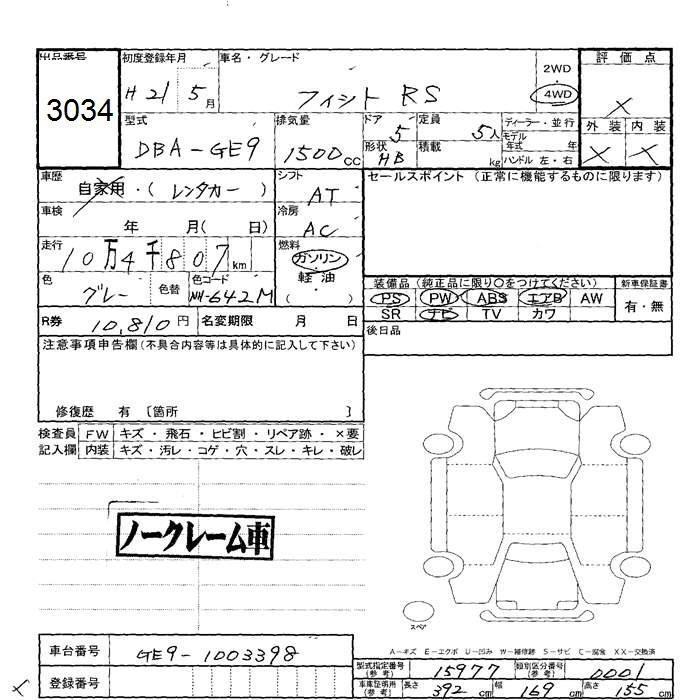 出品番号 初度登録年月 車名・グレード 2WD 評価点
3034 H 21 5月 フィット RS 4WD ×
型式 排気量 ドア 定員 ディーラー・並行 外装 内装
DBA-GE9 1500cc 5 5人 モデル年式 年 × ×
形状 HB 積載 kg ハンドル 左・右
車歴 シフト セールスポイント (正常に機能するものに限ります)
自家用・( レンタカー ) AT
車検 冷房
年 月( 日) AC
走行 燃料
10万4千807km ガソリン
色 色替 色コード 軽・油 装備品 (純正品に限り○をつけてください) 新車保証書
グレー NH-642M ( ) PS PW ABS エアB AW 有・無
R券 10,810円 名変期限 月 日 SR ナビ TV カワ
注意事項申告欄(不具合内容等は具体的に記入して下さい) 後日品
修復歴 有 〔箇所 〕
検査員 FW キズ・飛石・ヒビ割・リペア跡・×要
記入欄 内装 キズ・汚レ・コゲ・穴・スレ・キレ・破レ
ノークレーム車
スペア
A-キズ E-エクボ U-凹み W-補修跡 S-サビ C-腐食 XX-交換済
車台番号 GE9-1003398 型式指定番号(参考) 15977 類別区分番号(参考) 0001
登録番号 車庫証明用(参考) 長さ 392cm 幅 169cm 高さ 155cm